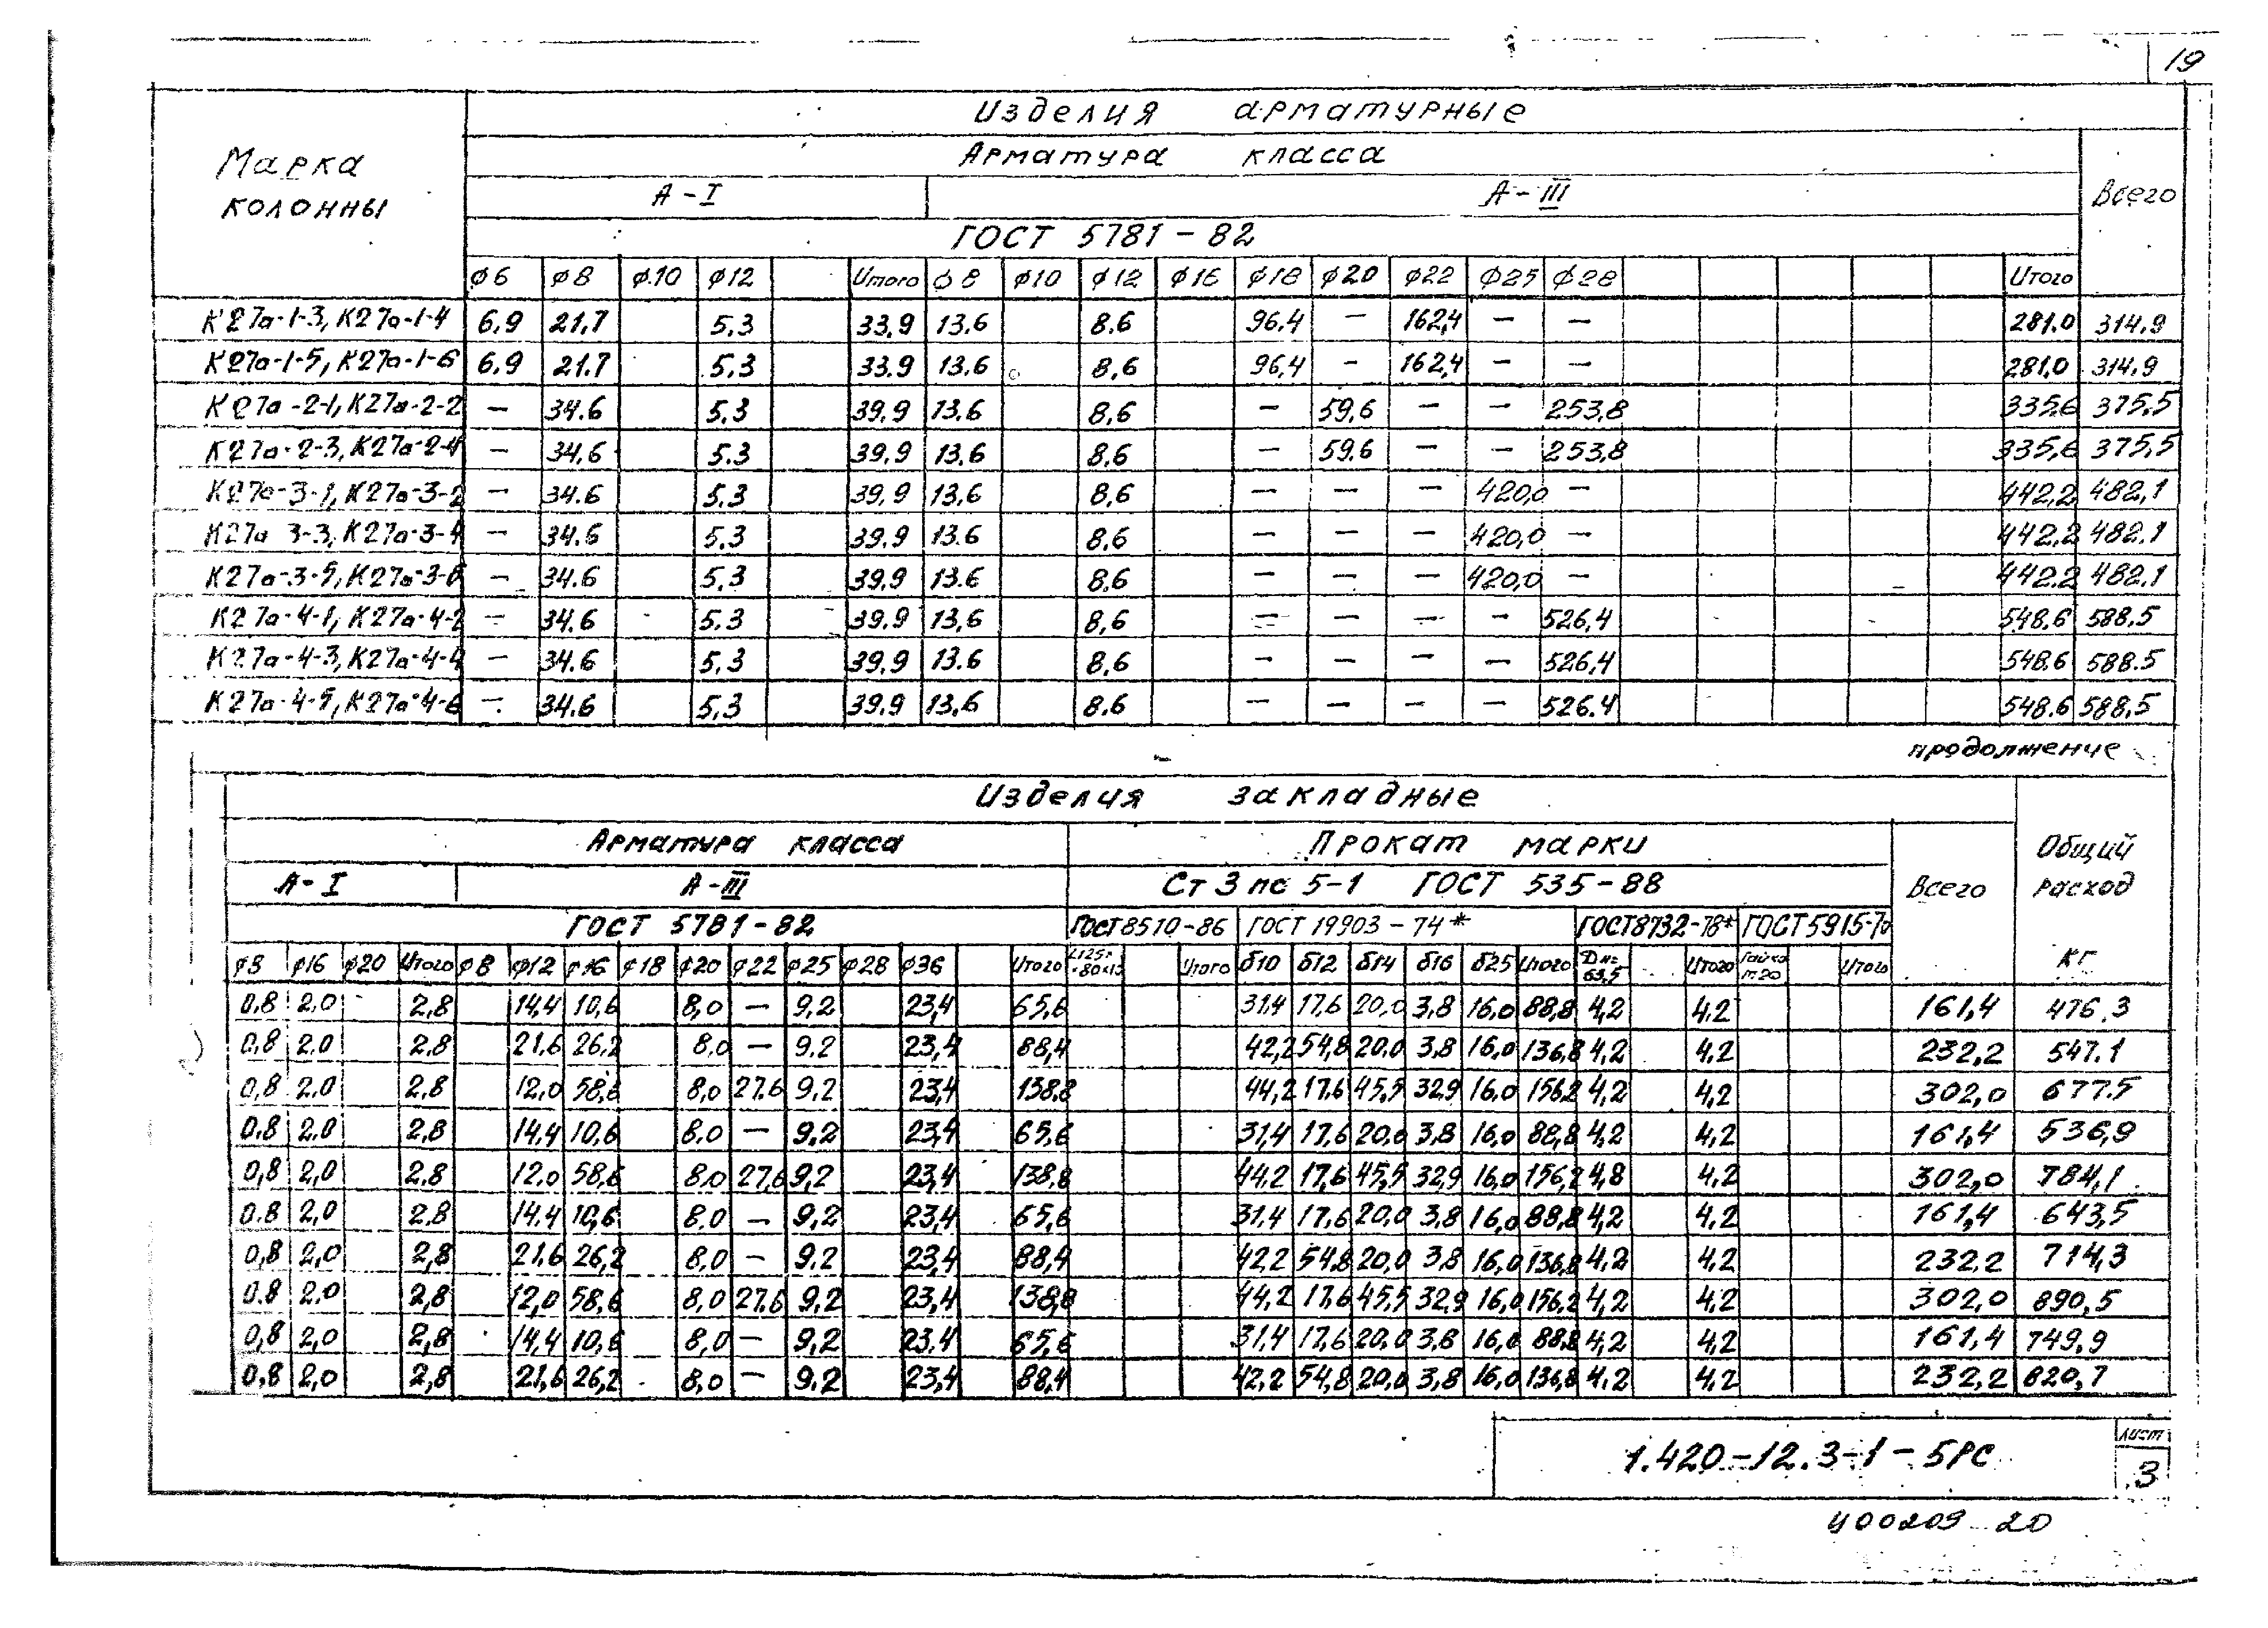 19
Марка колонны
Изделия арматурные
Арматура класса
Всего
А-I А-III
ГОСТ 5781-82
ф6 ф8 ф10 ф12 Итого ф8 ф10 ф12 ф16 ф18 ф20 ф22 ф25 ф28 Итого
К27а-1-3, К27а-1-4 6,9 21,7 5,3 33,9 13,6 8.6 96.4 — 162,4 — — 281.0 314.9
К27а-1-5, К27а-1-6 6,9 21.7 5,3 33.9 13.6 8,6 96,4 — 162,4 — — 281,0 314,9
К27а-2-1, К27а-2-2 — 34.6 5,3 39,9 13.6 8,6 — 59,6 — — 253,8 335,6 375,5
К27а-2-3, К27а-2-4 — 34,6 5.3 39,9 13,6 8,6 — 59.6 — — 253,8 335,6 375,5
К27а-3-1, К27а-3-2 — 34.6 5.3 39,9 13.6 8,6 — — — 420,0 — 442,2 482,1
К27а 3-3, К27а-3-4 — 34.6 5,3 39.9 13.6 8,6 — — — 420,0 — 442,2 482.1
К27а-3-5, К27а-3-6 — 34.6 5,3 39,9 13.6 8,6 — — — 420,0 — 442.2 482.1
К27а-4-1, К27а-4-2 — 34.6 5.3 39.9 13,6 8,6 — — — — 526,4 548,6 588,5
К27а-4-3, К27а-4-4 — 34.6 5,3 39,9 13.6 8,6 — — — — 526,4 548.6 588.5
К27а-4-5, К27а-4-6 — 34.6 5,3 39.9 13,6 8.6 — — — — 526.4 548.6 588,5
продолжение
Изделия закладные
Арматура класса Прокат марки
Всего
Общий расход кг
А-I А-III Ст 3 пс 5-1 ГОСТ 535-88
ГОСТ 5781-82 ГОСТ 8510-86 ГОСТ 19903-74* ГОСТ 8732-78* ГОСТ 5915-70
ф8 ф16 ф20 Итого ф8 ф12 ф16 ф18 ф20 ф22 ф25 ф28 ф36 Итого Итого δ10 δ12 δ14 δ16 δ25 Итого Dн= 63,5 Итого Гайка Итого
0,8 2.0 2,8 14,4 10,6 8,0 — 9,2 23,4 65,6 31,4 17,6 20,0 3,8 16,0 88,8 4,2 4,2 161,4 476.3
0,8 2.0 2.8 21.6 26.2 8,0 — 9.2 23,4 88,4 42,2 54,8 20,0 3,8 16,0 136,8 4,2 4,2 232,2 547.1
0,8 2.0 2,8 12,0 58,6 8,0 27.6 9,2 23,4 138.8 44,2 17,6 45,5 32,9 16,0 156,2 4,2 4,2 302,0 677.5
0.8 2.0 2,8 14.4 10,6 8.0 — 9,2 23,4 65,6 31,4 17,6 20,0 3,8 16,0 88,8 4,2 4,2 161,4 536,9
0,8 2,0 2,8 12.0 58,6 8,0 27,6 9,2 23,4 138,8 44,2 17,6 45,5 32,9 16,0 156,2 4,8 4,2 302,0 784,1
0.8 2,0 2,8 14.4 10,6 8.0 — 9,2 23,4 65,6 31,4 17,6 20,0 3,8 16,0 88,8 4,2 4,2 161,4 643,5
0,8 2,0 2,8 21,6 26,2 8,0 — 9.2 23,4 88,4 42,2 54,8 20,0 3,8 16,0 136,8 4,2 4,2 232,2 714,3
0.8 2,0 2,8 12,0 58,6 8,0 27,6 9,2 23,4 138,8 44,2 17,6 45,5 32,9 16,0 156,2 4,2 4,2 302,0 890,5
0,8 2,0 2,8 14,4 10,6 8,0 — 9,2 23,4 65,6 31,4 17,6 20,0 3,8 16,0 88,8 4,2 4,2 161,4 749,9
0,8 2,0 2,8 21,6 26,2 8,0 — 9.2 23,4 88,4 42,2 54,8 20,0 3,8 16,0 136,8 4,2 4,2 232,2 820,7
1.420-12.3-1-5РС
лист
3
Ц00209 20